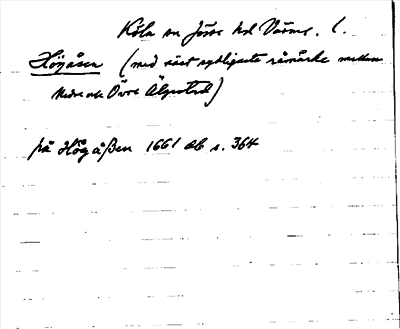 Köla sn Jösse hd Värml. l.
Höjåsen (med näst sydligaste råmärke mellan
Nedre och Övre Älgsted)
på Hög åßen 1661 ab s. 364